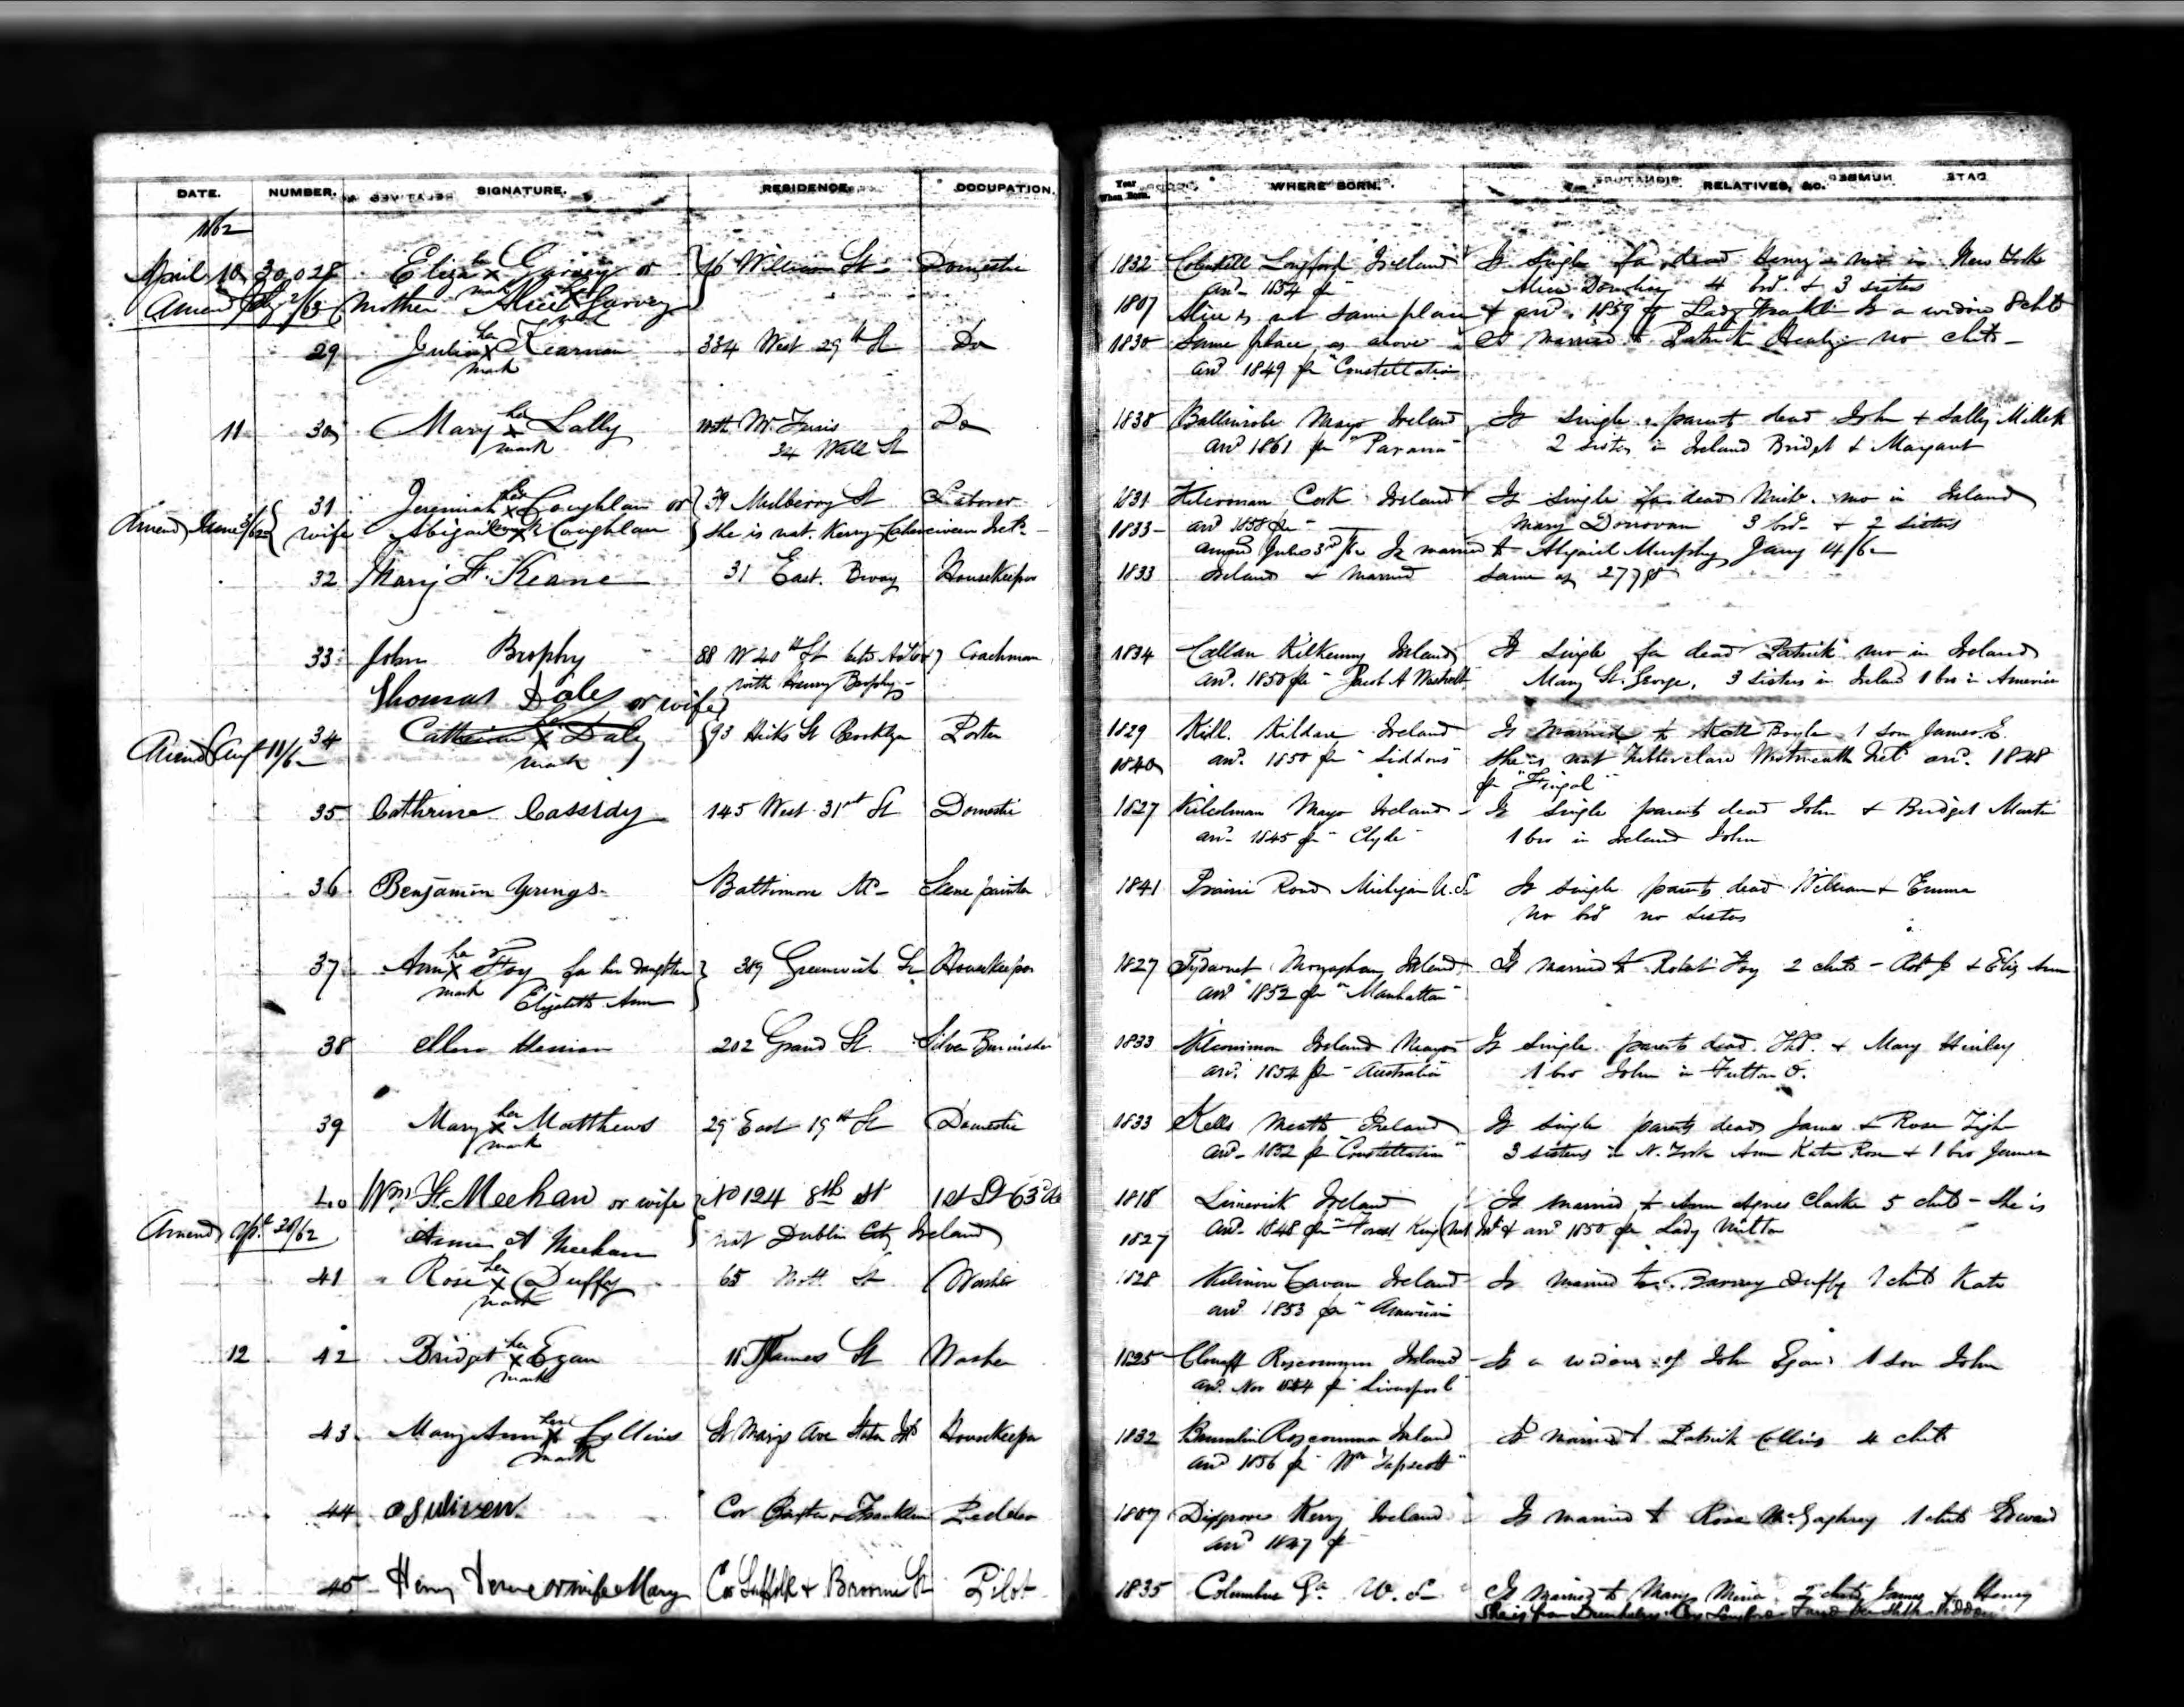 DATE. NUMBER. SIGNATURE. RESIDENCE. OCCUPATION. Year When Born. WHERE BORN. RELATIVES, &c.
1862
April 10 30,028 Eliza her x Garvey or 76 William St Domestic 1832 Longford Ireland Is single fa. dead Henry mo in New York
mark arr. 1854 pr Alice Dowling 4 bro. & 3 sisters
Amend mother Alice x Garvey 1807 Alice is nat same place & arr. 1859 pr Lady Franklin Is a widow 8 chld
29 Julia her x Kearnan 334 West 29th St Do 1830 Same place as above Is married to Patrick Healy no chld
mark arr 1849 pr "Constellation"
11 30 Mary her x Lally with Mr. 34 Wall St Do 1838 Ballinrobe Mayo Ireland Is single parents dead John & Sally
mark arr 1861 pr "Parana" 2 sisters in Ireland Bridget & Margaret
31 Jeremiah his x Coughlan or 39 Mulberry St Laborer 1831 Cork Ireland Is single fa. dead mo in Ireland
Amend June 3/62 wife Abigail x Coughlan she is nat. Kerry Caherciveen Irel. 1833 arr 1858 pr Mary Donovan 3 bro. & 2 sisters
amend Is married to Abigail Murphy Jany 14/62
32 Mary F. Keane 31 East. Bway Housekeeper 1833 Ireland & married same as
33 John Brophy 88 W 40th St Coachman 1834 Callan Kilkenny Ireland Is single fa dead Patrick mo in Ireland
with Henry Brophy arr. 1850 pr Jacob A Mary St. George, 3 sisters in Ireland 1 bro in America
Thomas Daley or wife
34 Catherine her x Daly 93 Hicks St Brooklyn Porter 1829 Kill. Kildare Ireland Is married to Kate Boyle 1 son James E.
Amend Aug 11/62 mark 1840 arr. 1850 pr "Siddons" she is nat Westmeath Irel. arr. 1848
pr "Fingal"
35 Cathrine Cassidy 145 West 31st St Domestic 1827 Mayo Ireland Is single parents dead John & Bridget Martin
arr. 1845 pr "Clyde" 1 bro in Ireland John
36 Benjamin Yrings Baltimore Md Scene painter 1841 Prairie Rond Michigan U.S. Is single parents dead William & Emma
no bro no sisters
37 Ann her x Foy for her daughter 389 Greenwich St Housekeeper 1827 Tydavnet Monaghan Ireland Is married to Robert Foy 2 chld - Robt Jr & Eliz Ann
mark Elizabeth Ann arr 1852 pr "Manhattan"
38 Ellen 202 Grand St. Silver Burnisher 1833 Ireland Mayo Is single parents dead. & Mary
arr. 1854 pr "Australia" 1 bro John in Fulton O.
39 Mary her x Matthews 29 East 19th St Domestic 1833 Kells Meath Ireland Is single parents dead James & Rose
mark arr. 1852 pr "Constellation" 3 sisters in N. York Ann Kate Rose & 1 bro James
40 Wm. St. Meehan or wife No 124 8th St 1818 Limerick Ireland Is married to Ann Agnes Clarke 5 chld - she is
Amend 62 Annie A Meehan nat Dublin City Ireland 1827 arr. 1848 pr & arr 1850 pr Lady Milton
41 Rose her x Duffy 65 Mott St Washer 1828 Cavan Ireland Is married to Barney Duffy 1 chld Kate
mark arr 1853 pr "American"
12 42 Bridget her x Egan James St Washer 1825 Roscommon Ireland Is a widow of John Egan 1 son John
mark arr. Nov 1844 pr "Liverpool"
43 Mary Ann her x Collins St Marys Ave Staten Isd Housekeeper 1832 Roscommon Ireland Is married to Patrick Collins 4 chld
mark arr 1856 pr "Wm Tapscott"
44 osuliven. Cor Baxter & Franklin Pedder 1807 Kerry Ireland Is married to Rose 1 chld Edward
arr 1847 pr
45 Henry or wife Mary Cor Suffolk & Broome St Pilot 1835 Columbus Ga U.S. Is married to Mary 2 chld James & Henry
She is from